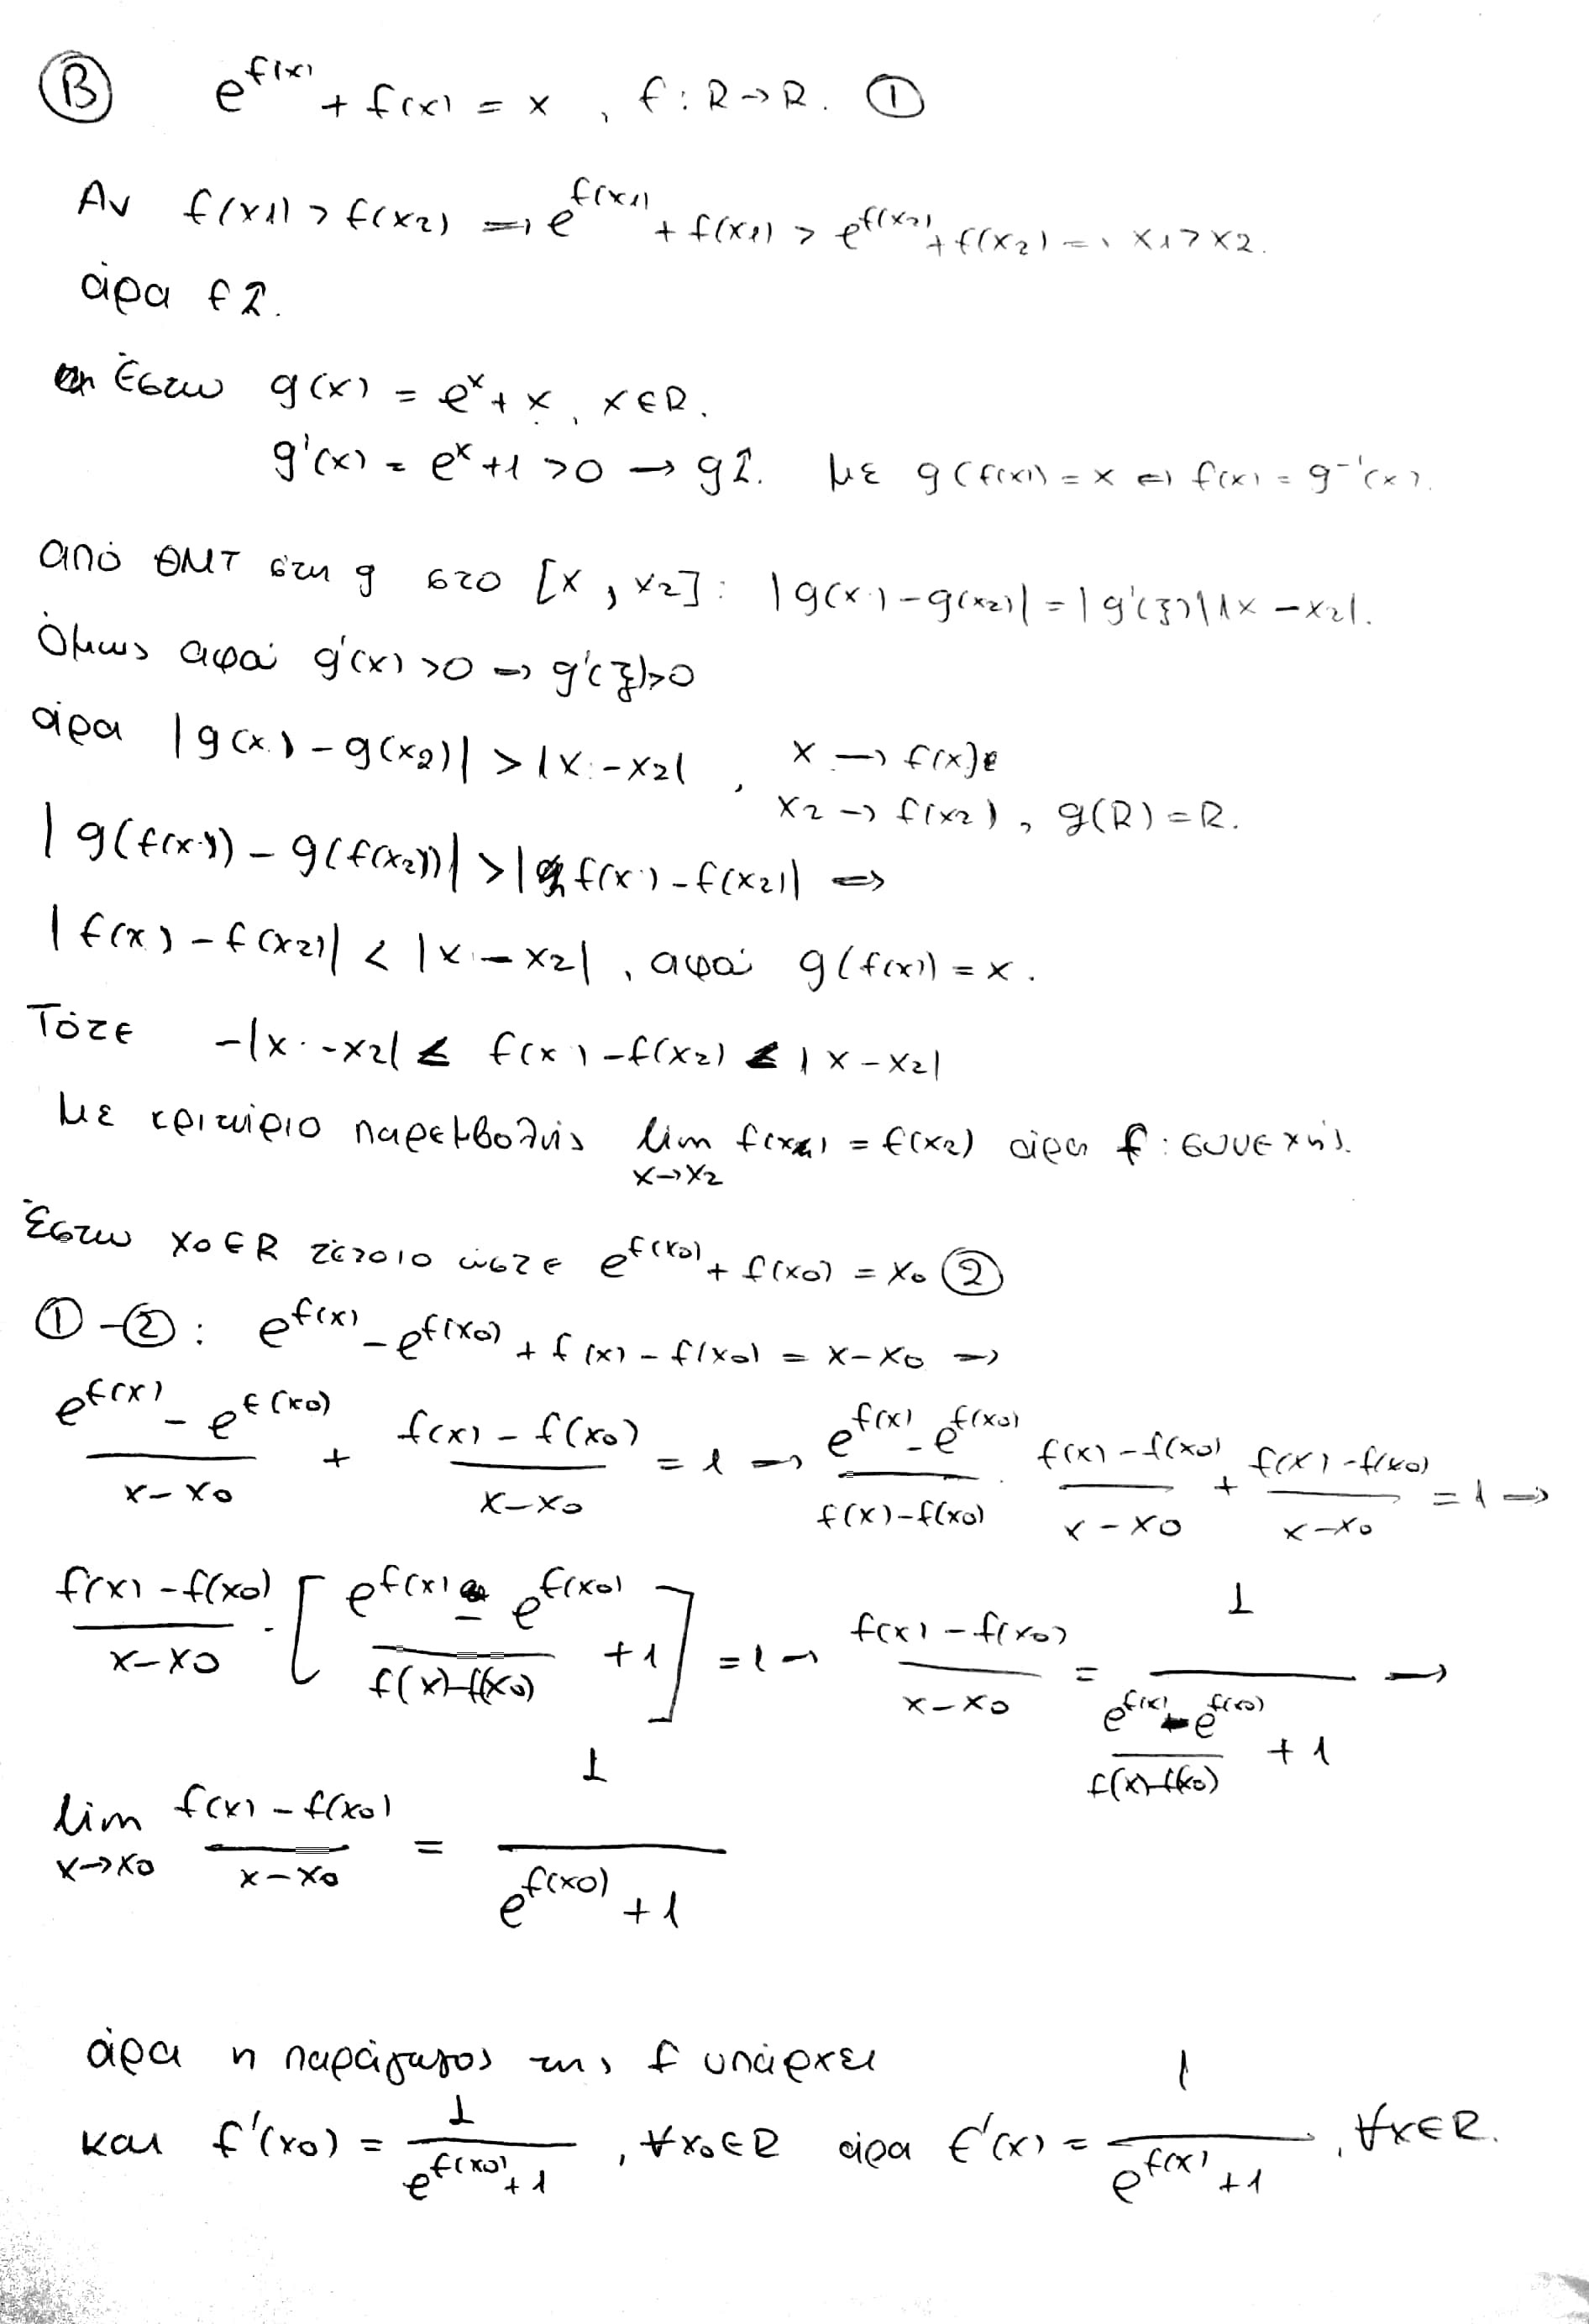 Β e^{f(x)} + f(x) = x , f: R → R. ①
Αν f(x1) > f(x2) ⇒ e^{f(x1)} + f(x1) > e^{f(x2)} + f(x2) ⇒ x1 > x2.
άρα f ↑.
Έστω g(x) = e^x + x, x ∈ R.
g'(x) = e^x + 1 > 0 → g ↑. με g(f(x)) = x ⇔ f(x) = g^{-1}(x).
από ΘΜΤ στη g στο [x, x2]: |g(x) - g(x2)| = |g'(ξ)||x - x2|.
Όμως αφού g'(x) > 0 ⇒ g'(ξ) > 0
άρα |g(x) - g(x2)| > |x - x2| , x → f(x)
x2 → f(x2), g(R) = R.
|g(f(x)) - g(f(x2))| > |f(x) - f(x2)| ⇒
|f(x) - f(x2)| < |x - x2|, αφού g(f(x)) = x.
Τότε -|x - x2| ≤ f(x) - f(x2) ≤ |x - x2|
με κριτήριο παρεμβολής lim_{x→x2} f(x) = f(x2) άρα f: συνεχής.
Έστω x0 ∈ R τέτοιο ώστε e^{f(x0)} + f(x0) = x0 ②
① - ②: e^{f(x)} - e^{f(x0)} + f(x) - f(x0) = x - x0 ⇒
(e^{f(x)} - e^{f(x0)})/(x - x0) + (f(x) - f(x0))/(x - x0) = 1 ⇒ (e^{f(x)} - e^{f(x0)})/(f(x) - f(x0)) · (f(x) - f(x0))/(x - x0) + (f(x) - f(x0))/(x - x0) = 1 ⇒
(f(x) - f(x0))/(x - x0) · [(e^{f(x)} - e^{f(x0)})/(f(x) - f(x0)) + 1] = 1 → (f(x) - f(x0))/(x - x0) = 1/((e^{f(x)} - e^{f(x0)})/(f(x) - f(x0)) + 1) →
lim_{x→x0} (f(x) - f(x0))/(x - x0) = 1/(e^{f(x0)} + 1)
άρα η παράγωγος της f υπάρχει
και f'(x0) = 1/(e^{f(x0)} + 1), ∀x0 ∈ R άρα f'(x) = 1/(e^{f(x)} + 1), ∀x ∈ R.